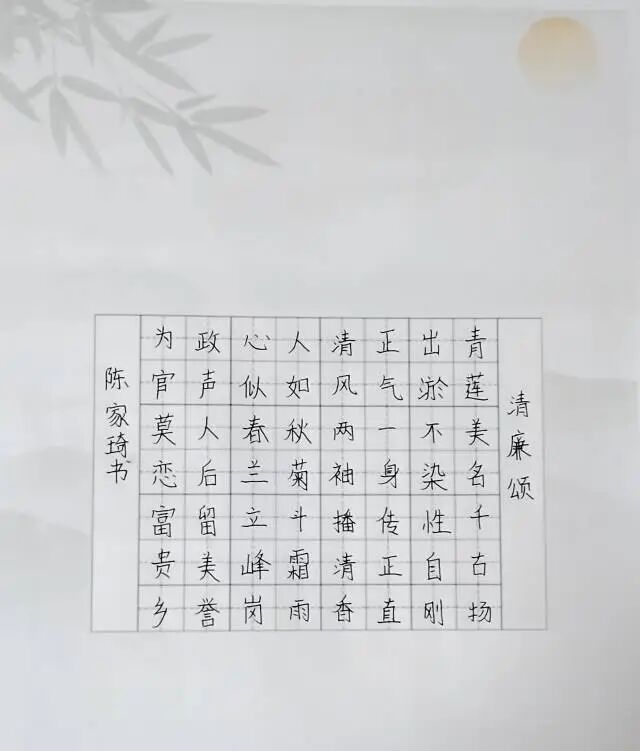 清廉颂
青莲美名千古扬
出淤不染性自刚
正气一身传正直
清风两袖播清香
人如秋菊斗霜雨
心似春兰立峰岗
政声人后留美誉
为官莫恋富贵乡
陈家琦书